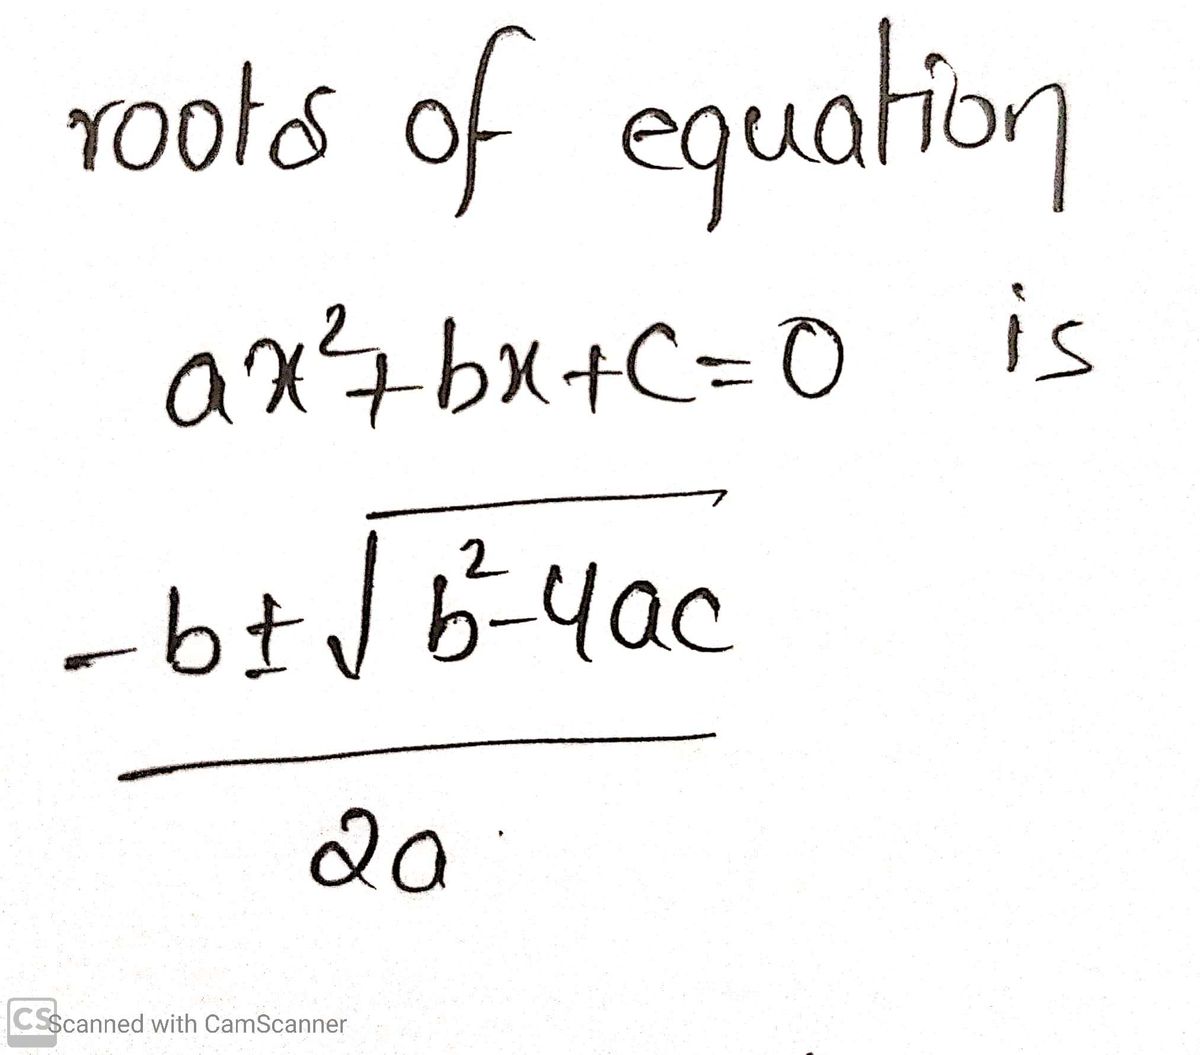 roots of equation
ax²+bx+c=0 is
-b±√b²-4ac
2a
CS Scanned with CamScanner